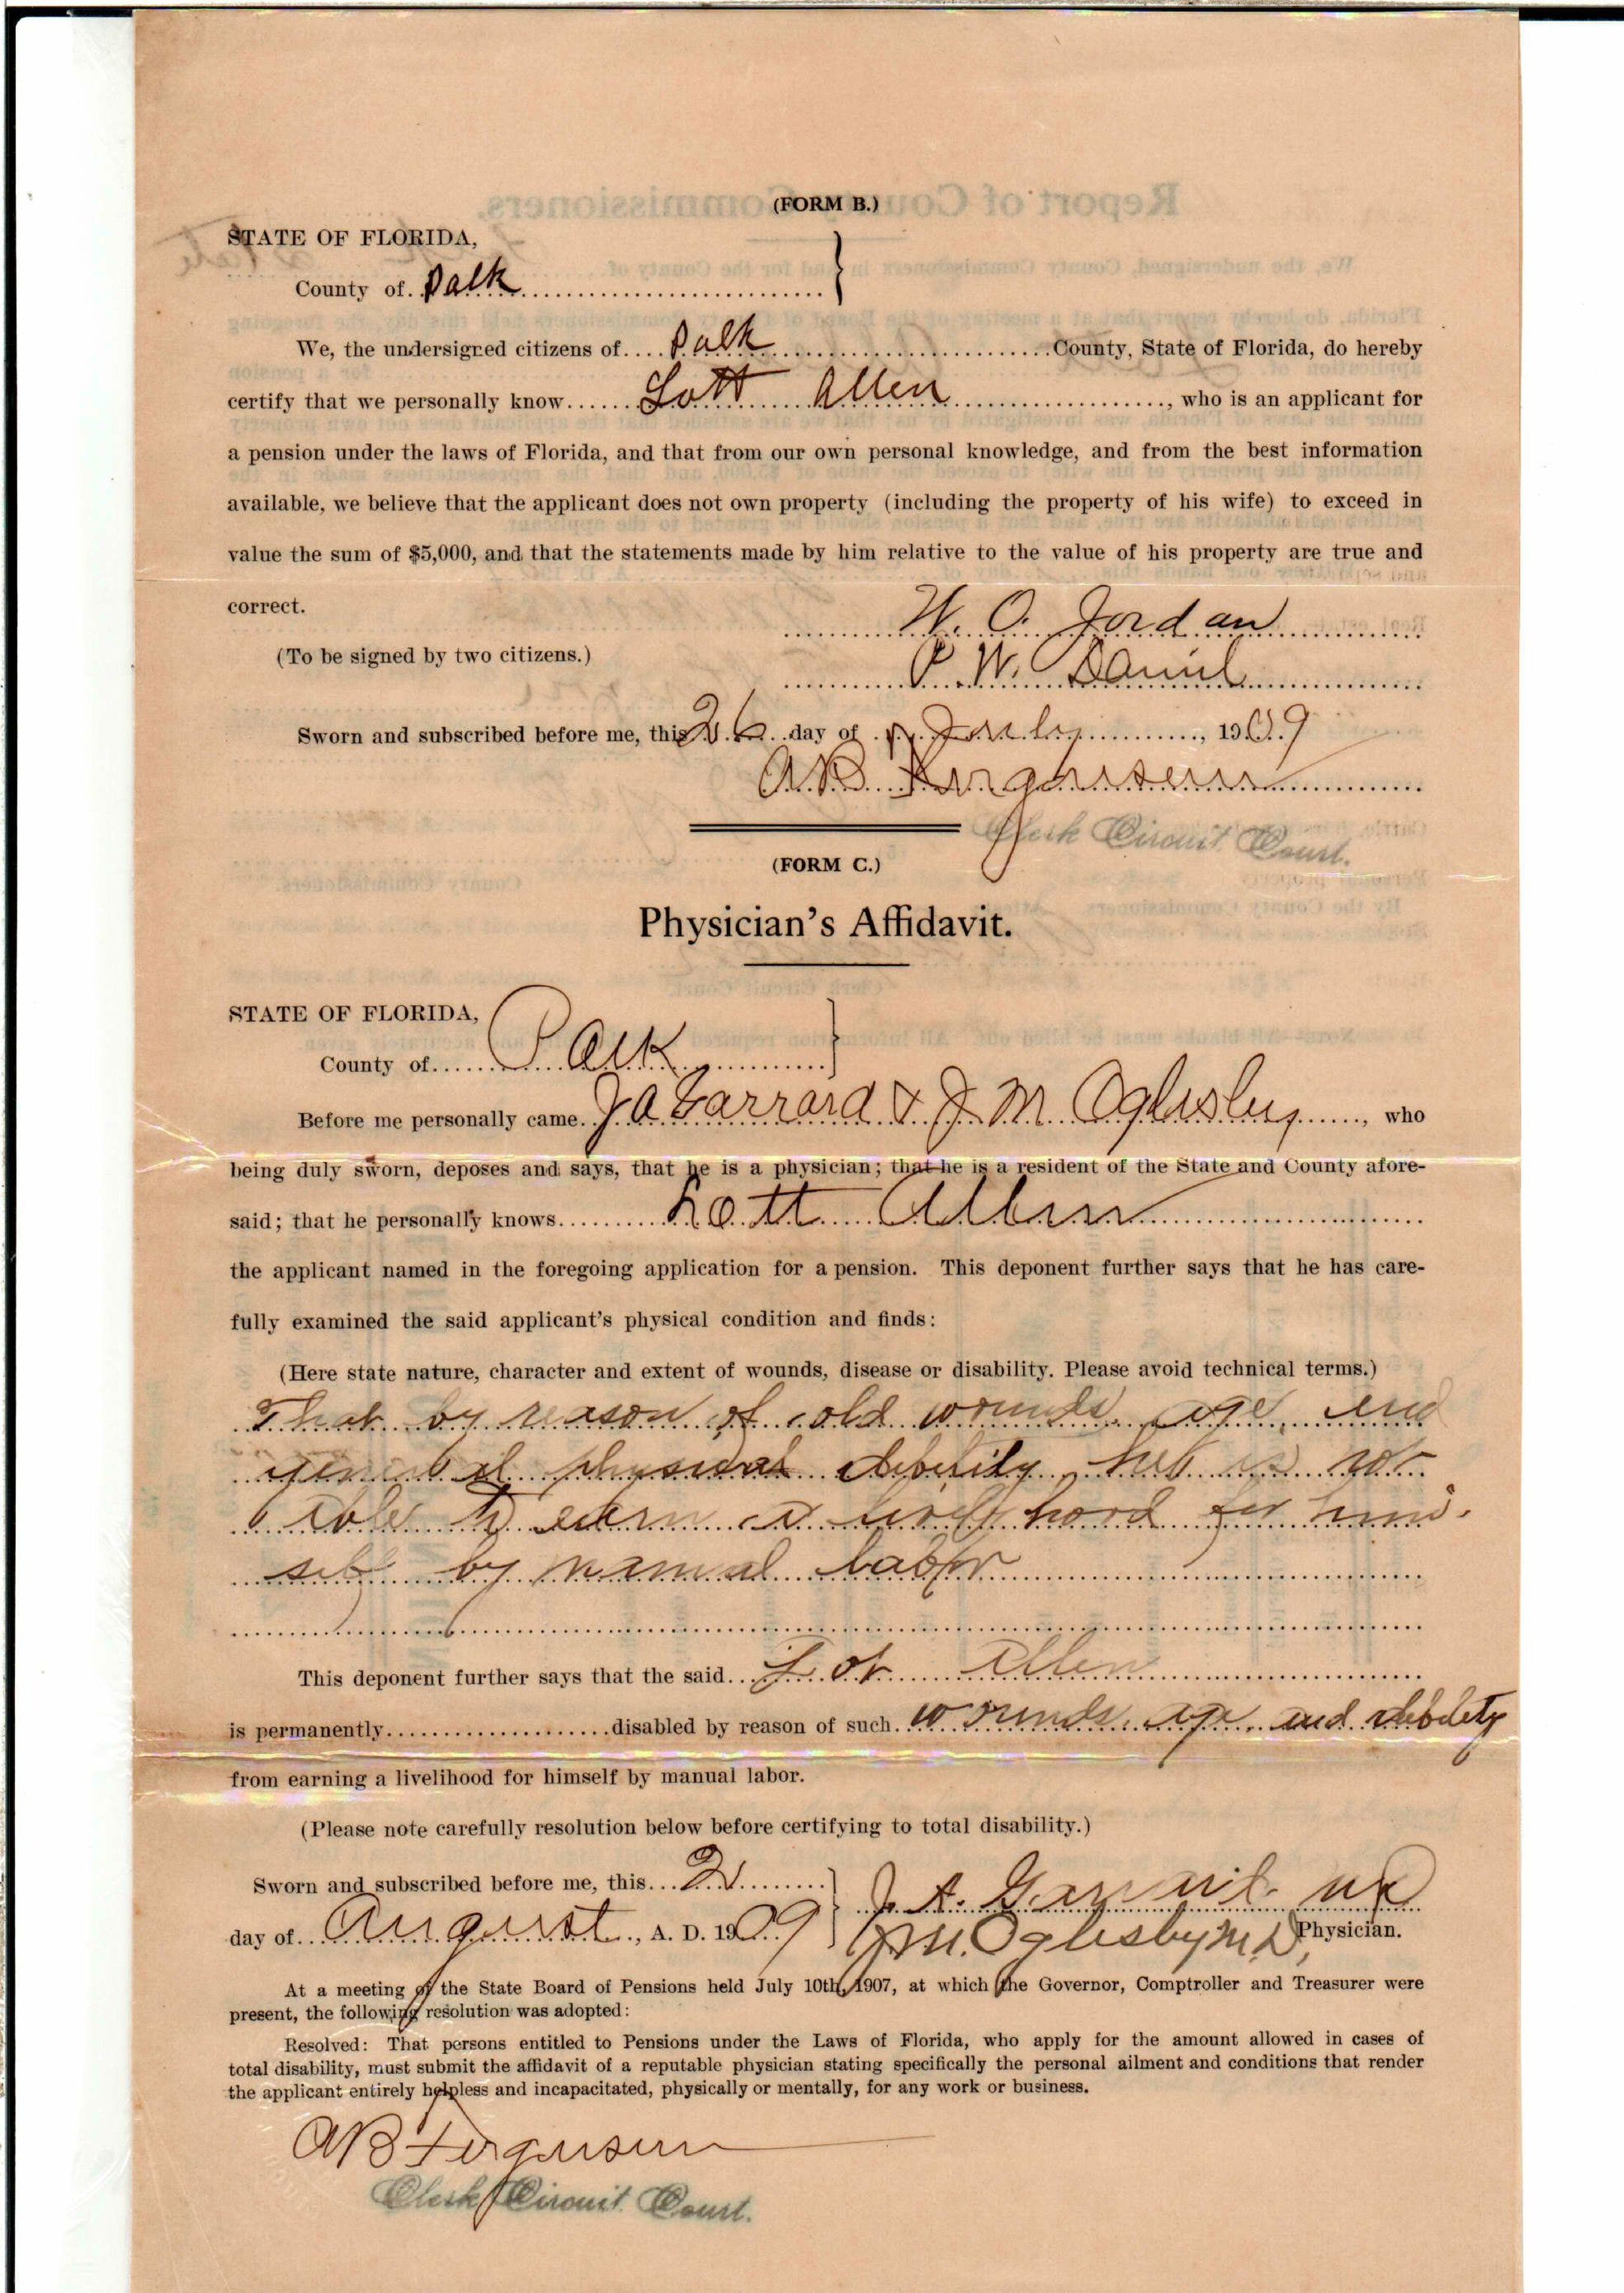 (FORM B.)
STATE OF FLORIDA,
County of Polk
We, the undersigned citizens of Polk County, State of Florida, do hereby
certify that we personally know Lott Allen, who is an applicant for
a pension under the laws of Florida, and that from our own personal knowledge, and from the best information
available, we believe that the applicant does not own property (including the property of his wife) to exceed in
value the sum of $5,000, and that the statements made by him relative to the value of his property are true and
correct.
W. O. Jordan
(To be signed by two citizens.)
P. W. Daniel
Sworn and subscribed before me, this 26 day of July, 1909
A B Ferguson
Clerk Circuit Court.
(FORM C.)
Physician's Affidavit.
STATE OF FLORIDA,
County of Polk
Before me personally came J A Garrard & J. M. Oglesby, who
being duly sworn, deposes and says, that he is a physician; that he is a resident of the State and County afore-
said; that he personally knows Lott Allen
the applicant named in the foregoing application for a pension. This deponent further says that he has care-
fully examined the said applicant's physical condition and finds:
(Here state nature, character and extent of wounds, disease or disability. Please avoid technical terms.)
That by reason of old wounds, age, and
general physical debility, he is not
able to earn a livelyhood for him-
self by manual labor
This deponent further says that the said Lot Allen
is permanently disabled by reason of such wounds, age, and debility
from earning a livelihood for himself by manual labor.
(Please note carefully resolution below before certifying to total disability.)
Sworn and subscribed before me, this 2
day of August, A. D. 1909
J. A. Garrard MD
J M. Oglesby M.D, Physician.
At a meeting of the State Board of Pensions held July 10th, 1907, at which the Governor, Comptroller and Treasurer were
present, the following resolution was adopted:
Resolved: That persons entitled to Pensions under the Laws of Florida, who apply for the amount allowed in cases of
total disability, must submit the affidavit of a reputable physician stating specifically the personal ailment and conditions that render
the applicant entirely helpless and incapacitated, physically or mentally, for any work or business.
A B Ferguson
Clerk Circuit Court.